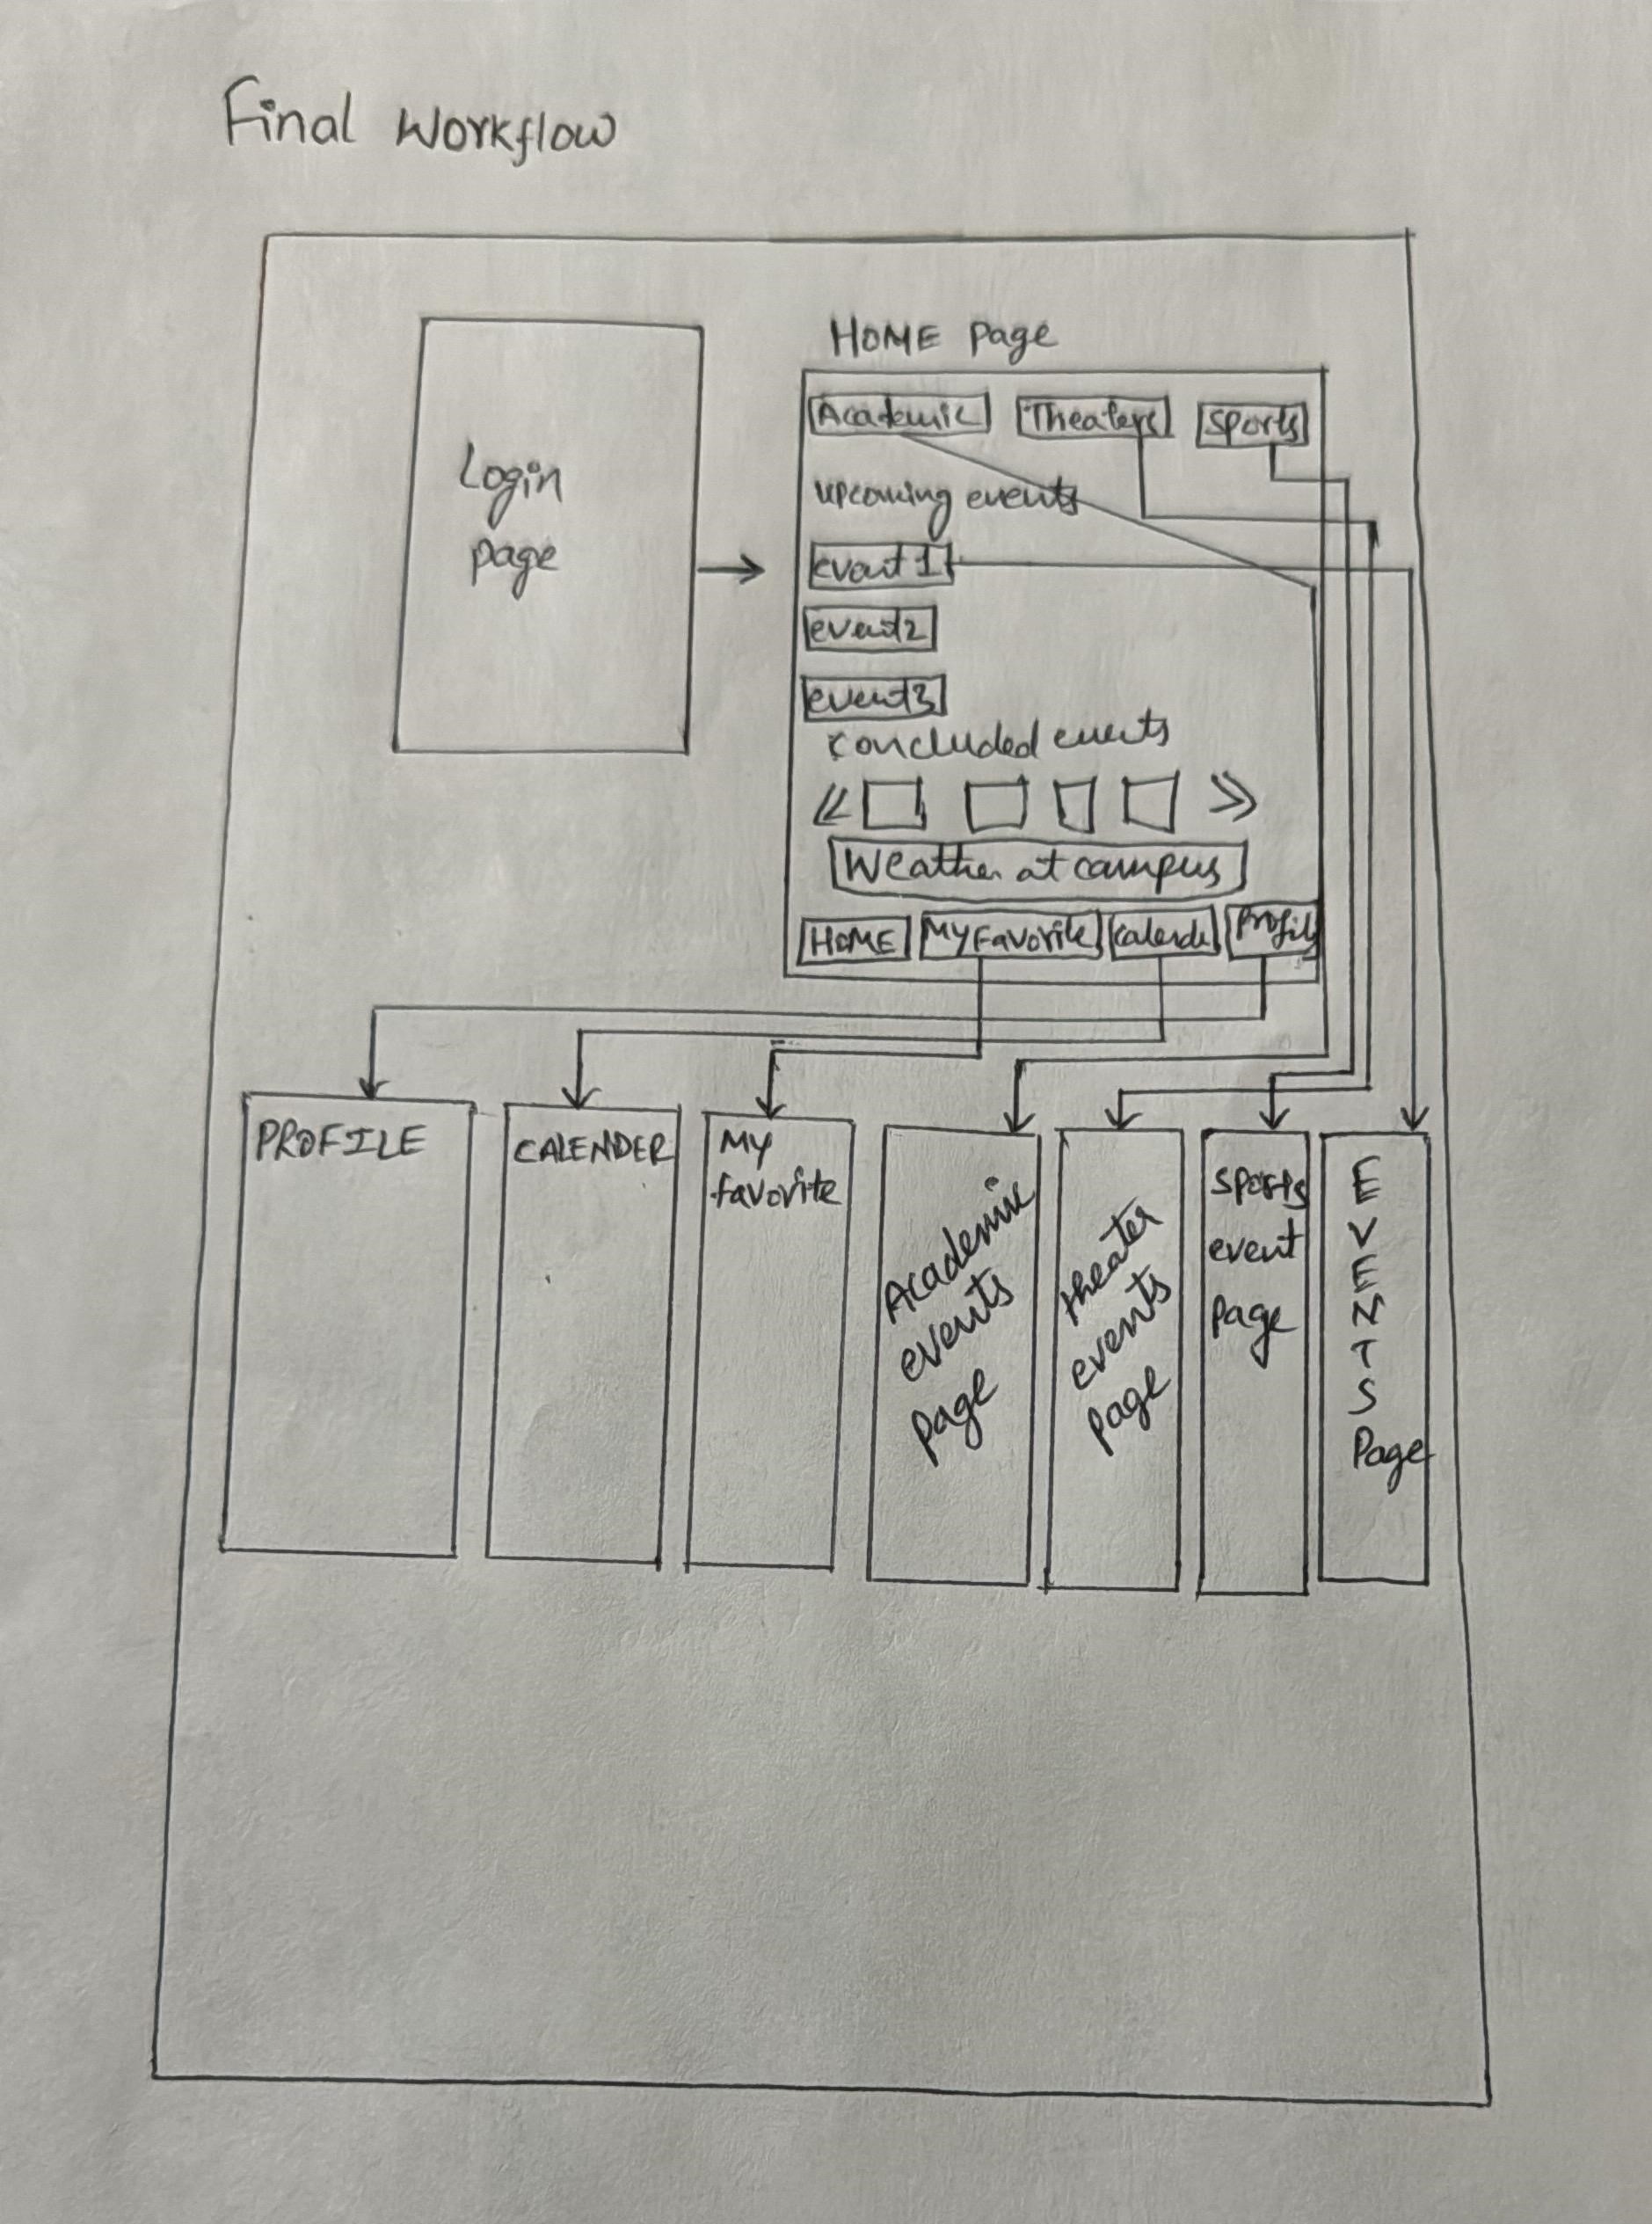 Final Workflow
HOME Page
Login
page
Academic Theaters Sports
upcoming events
event 1
event2
event3
concluded events
Weather at campus
HOME MY Favorite Calende Profile
PROFILE
CALENDER
MY
favorite
Academic
events
Page
theater
events
Page
sports
event
Page
EVENTS
Page